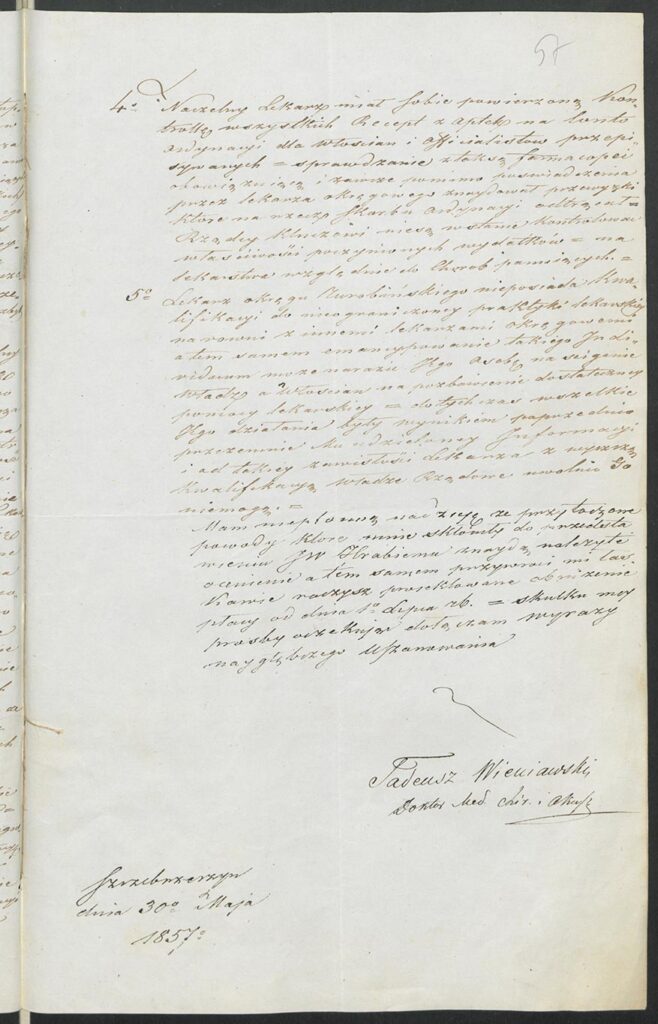 57
4o Naczelny Lekarz miał sobie powierzoną Kon-
trollę wszystkich Recept z Aptek na konto
ordynacyi dla włościan i officialistów przepi-
sywanych = sprawdzanie z taksą farmacopei
obowiązującą i zawsze pomimo poswiadczenia
przez lekarza okręgowego znaydował przewyżki
które na rzecz Skarbu ordynacyi odtrącał =
Rządcy Kluczowi niesą wstanie kontrolować
właściwości poczynionych wydatków = na
lekarstwa względnie do Chorob panuiących. =
5o Lekarz okręgu Zwrobińskiego nieposiada Kwa-
lifikacyi do nieograniczoney praktyki lekarskiey
narowni z innemi lekarzami okręgowemi
a tem samem emancypowanie takiego Indi-
viduum może narazić Jego osobę na sciganie
władz a włościan na pozbawienie dostateczney
pomocy lekarskiey = dotychczas wszelkie
Jego działania były wynikiem poprzednio
przezemnie Mu udzieloney Informacyi
i od takiey zawisłości Lekarza z wyższą
kwalifikacyą władze Rządowe uwolnić Go
niemogą. =
Mam niepłonną nadzieję, że przytoczone
powody które mnie skłoniły do przedsta
wienia JW Hrabiemu znaydą należyte
ocenienie a tem samem przywróci mi łas
kawie raczysz projektowane obniżenie
płacy od dnia 1o Lipca rb. = skutku mey
prośby oczekując dołączam wyrazy
naygłębszego Uszanowania
Tadeusz Wieniawski
Doktor Med. Chir. i Akusz
Szczebrzeszyn
dnia 30o Maja
1857o